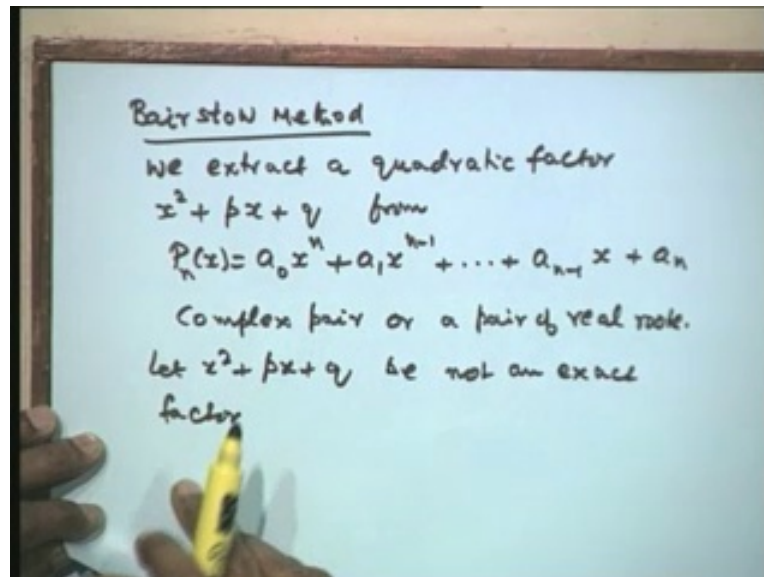 Bairstow Method
We extract a quadratic factor
x² + px + q from
Pₙ(x) = a₀xⁿ + a₁xⁿ⁻¹ + ... + aₙ₋₁ x + aₙ
Complex pair or a pair of real roots.
Let x² + px + q be not an exact
factor